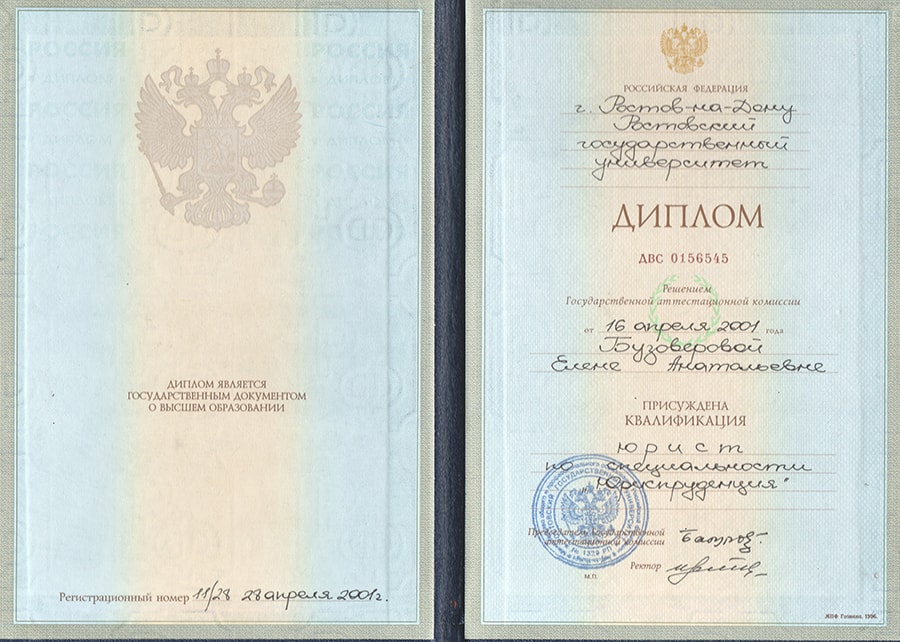 ДИПЛОМ ЯВЛЯЕТСЯ
ГОСУДАРСТВЕННЫМ ДОКУМЕНТОМ
О ВЫСШЕМ ОБРАЗОВАНИИ
Регистрационный номер 11/28 28 апреля 2001г.
РОССИЙСКАЯ ФЕДЕРАЦИЯ
г. Ростов-на-Дону
Ростовский
государственный
университет
ДИПЛОМ
ДВС 0156545
Решением
Государственной аттестационной комиссии
от 16 апреля 2001 года
Бузоверовой
Елене Анатольевне
ПРИСУЖДЕНА
КВАЛИФИКАЦИЯ
юрист
по специальности
Юриспруденция"
Председатель Государственной
аттестационной комиссии
Ректор
М.П.
№ 1329 РП
МПФ Гознака. 1996.